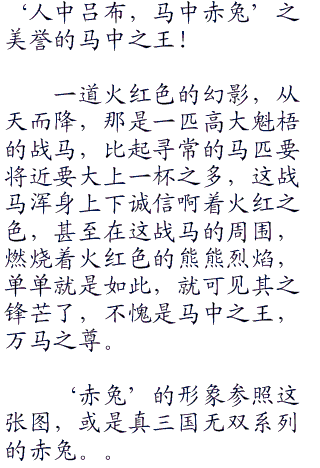 ‘人中吕布，马中赤兔’之
美誉的马中之王！
一道火红色的幻影，从
天而降，那是一匹高大魁梧
的战马，比起寻常的马匹要
将近要大上一杯之多，这战
马浑身上下诚信啊着火红之
色，甚至在这战马的周围，
燃烧着火红色的熊熊烈焰，
单单就是如此，就可见其之
锋芒了，不愧是马中之王，
万马之尊。
‘赤兔’的形象参照这
张图，或是真三国无双系列
的赤兔。。